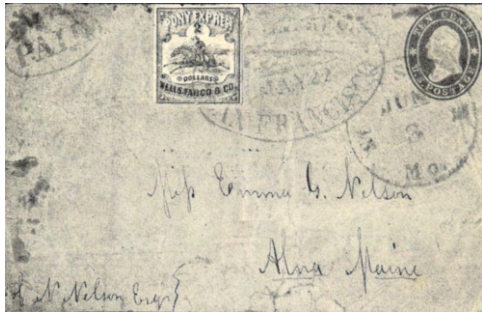 PAID
PONY EXPRESS
DOLLARES
WELLS FARGO & CO.
SAN FRANCISCO
TEN CENTS
U.S. POSTAGE
JUN
3
MO.
Miss Emma G. Nelson
Alna Maine
N. Nelson Esqr